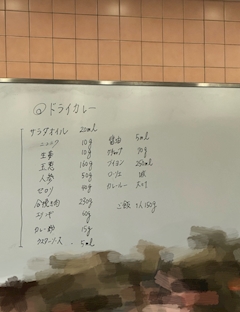 @ドライカレー
サラダオイル 20ml
ニンニク 10g
生姜 10g
玉葱 160g
人参 50g
セロリ 40g
合挽き肉 250g
60g
カレー粉 15g
ウスターソース 5ml
醤油 5ml
ケチャップ 30g
ブイヨン 250ml
ローリエ 1枚
カレールー
ご飯 1人150g